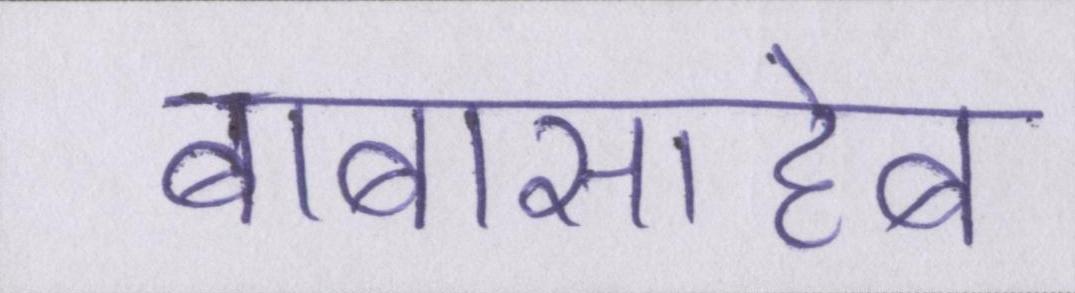 बाबासाहेब